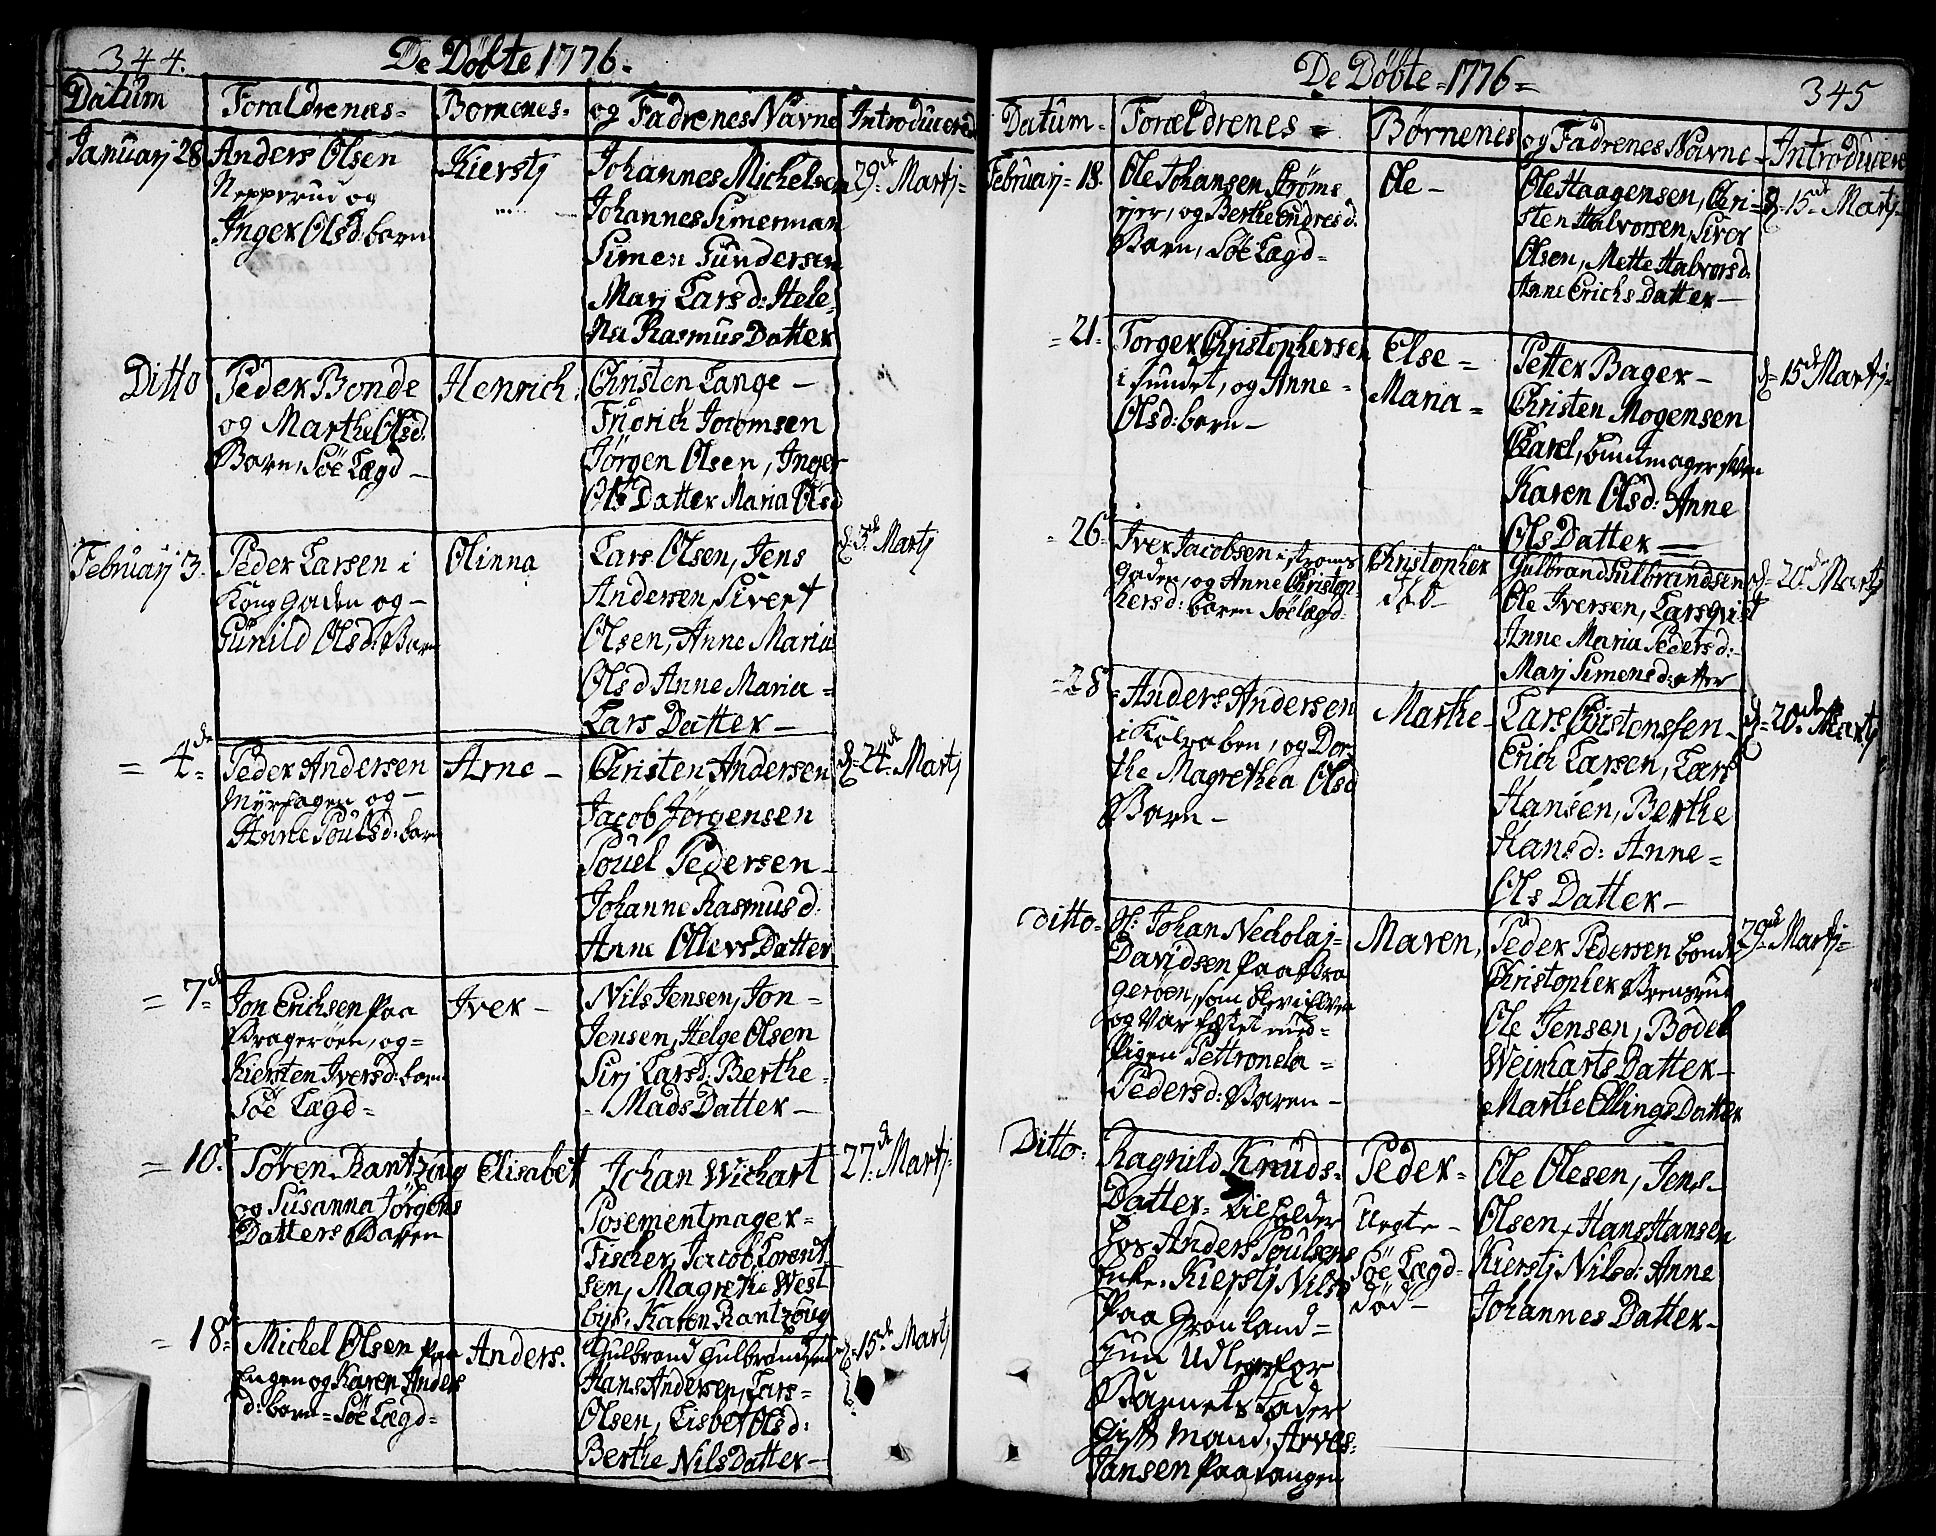 344.
De Döbte 1776.
Datum
Foraldrenes=
Börnenes=
og Fadrenes Navne
Introducered
Januarj 28
Anders Olsen
Nepperud og
Inger Olsd: barn
Kierstj
Johannes Michelsen
Johannes Simerman
Simen Gundersen
Marj Larsd: Hele=
na Rasmus Datter
29de Martj=
Ditto
Peder Bonde
og Marthe Olsd:
Barn, Söe Lægd -
Henrich.
Christen Lange -
Fridrich
Jörgen Olsen, Inger
Ols Datter Maria Olsd
Februarj 3.
Peder Larsen i
Kong gaden og -
Gunild Olsd: Barn
Olinna
Lars Olsen, Jens
Andersen, Sivert
Olsen, Anne Maria
Olsd Anne Maria =
Lars Datter -
d 3de Martj
= 4de
Peder Andersen
Myrhagen og -
Anne Poulsd: barn
Arne -
Christen Andersen
Jacob Jörgensen
Pouel Pedersen -
Johanne Rasmusd:
Anne Ollevs Datter
d= 24de Martj
= 7de
Jon Erichsen Paa
Brageröen, og =
Kiersten Iversd: barn
Söe Lægd =
Iver -
Nils Jensen, Jon =
Jensen, Helge Olsen
Sirj Larsd: Berthe =
Mads Datter -
= 10.
Sören Rantzoug
og Susanna Jörgens
Datters Barn
Elisabet
Johan Wichart
Posementmager =
Fischer, Jacob Lorent
sen, Magrethe West
bye, Karen Rantzoug
27de Martj=
= 18.
Michel Olsen Paa
Engen og Karen Anders
d: barn = Söe Lægd =
Anders.
Gulbrand Gulbrandsen
Hans Andersen, Lars =
Olsen, Lisbet Olsd:
Berthe Nils Datter -
d= 15de Martj
De Döbte =1776=
345
Datum -
Forældrenes =
Börnenes
og Fadrenes Navne =
Introducered
Februarj = 18.
Ole Johansen Ströms
ejer, og Berthe Endresd:
Barn, Söe Lægd =
Ole -
Ole Haagensen, Chri=
sten Halvorsen, Siver
Olsen, Mette Halvorsd:
Anne Erichs Datter -
d= 15de Martj
= 21.
Torger Christophersen
i sundet, og Anne =
Olsd: barn -
Else =
Maria =
Petter Bager -
Christen Mogensen
Karel, buntmager
Karen Olsd: Anne
Ols Datter =
d= 15de Martj=
= 26.
Iver Jacobsen i Ströms
gaden, og Anne Christop
hersd: Baren Söelægd
Christopher
död
Gulbrand Gulbrandsen
Ole Iversen, Lars qvist
Anne Maria Pedersd:-
Marj Simensdatter
d= 20de Martj
= 28
Anders Andersen
i Kolraben, og Dor=
the Magrethea Olsd
Barn -
Marthe -
Lars Christenssen -
Erich Larsen, Lars
Hansen, Berthe
Hansd: Anne =
Ols Datter -
d= 20de Martj
Ditto -
Hr: Johan Neckolaj=
Davidsen Paa Bra
geröen, som
og Var fæstet med =
Pigen Pettronela =
Pedersd: Baren -
Maren,
Peder Pedersen bonde
Christopher Brensrud
Ole Jensen, Bodel
Weinharts Datter -
Marthe Ellings Datter
29de Martj=
Ditto -
Ragnild Knuds=
Datter = tilholder
hos Anders Poulsens
Enke, Kierstj Nilsd
Paa Grönland =
hun udlegger for
Barnets Fader
Gift Mand, Arves=
Jansen Paa tangen
Peder =
Uegte -
Söe Lægd -
död -
Ole Olesen, Jens -
Olsen, Hans Hansen
Kierstj Nilsd: Anne
Johannes Datter -